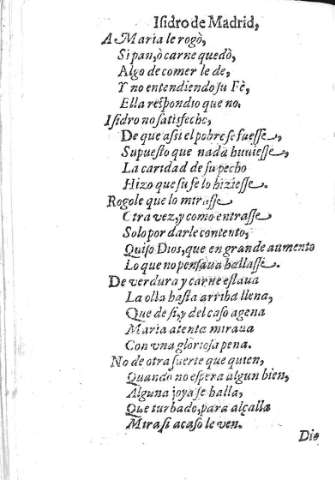 Isidro de Madrid,
A Maria le rogò,
Si pan, ò carne quedò,
Algo de comer le dè,
Y no entendiendo su Fè,
Ella respondio que no.
Isidro no satisfecho,
De que assi el pobre se fuesse,
Supuesto que nada huuiesse,
La caridad de su pecho
Hizo que su fe lo hiziesse.
Rogole que lo mirasse
Otra vez, y como entrasse
Solo por darle contento,
Quiso Dios, que en grande aumento
Lo que no pensaua hallasse.
De verdura y carne estaua
La olla hasta arriba llena,
Que de si, y del caso agena
Maria atenta miraua
Con vna gloriosa pena.
No de otra suerte que quien,
Quando no espera algun bien,
Alguna joya se halla,
Que turbado, para alçalla
Mira si acaso le ven.
Die